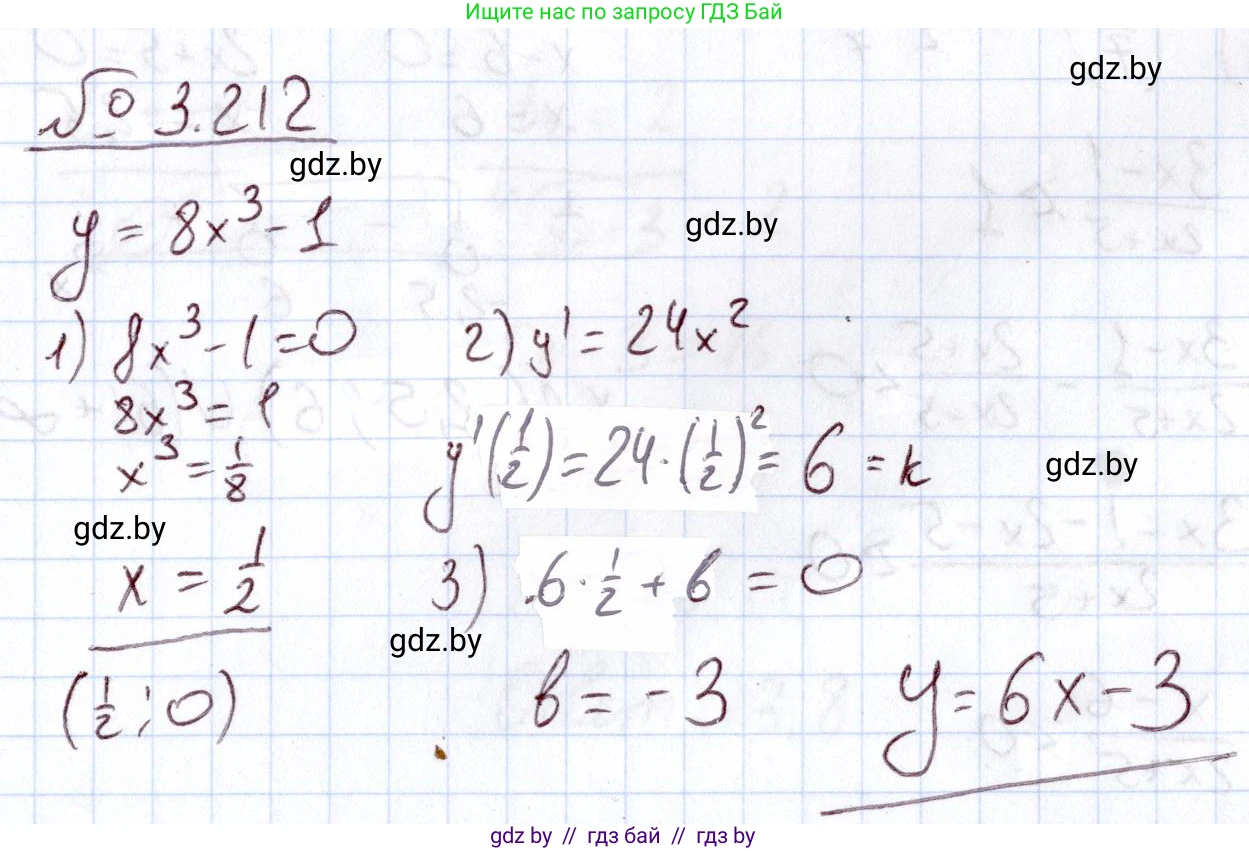 Ищите нас по запросу ГДЗ Бай
gdz.by
№ 3.212
gdz.by
y = 8x³ - 1
gdz.by
1) 8x³ - 1 = 0
8x³ = 1
x³ = 1/8
gdz.by
x = 1/2
(1/2; 0)
2) y' = 24x²
y'(1/2) = 24·(1/2)² = 6 = k
gdz.by
3) 6·1/2 + b = 0
gdz.by
b = -3
y = 6x - 3
gdz.by // гдз бай // гдз by